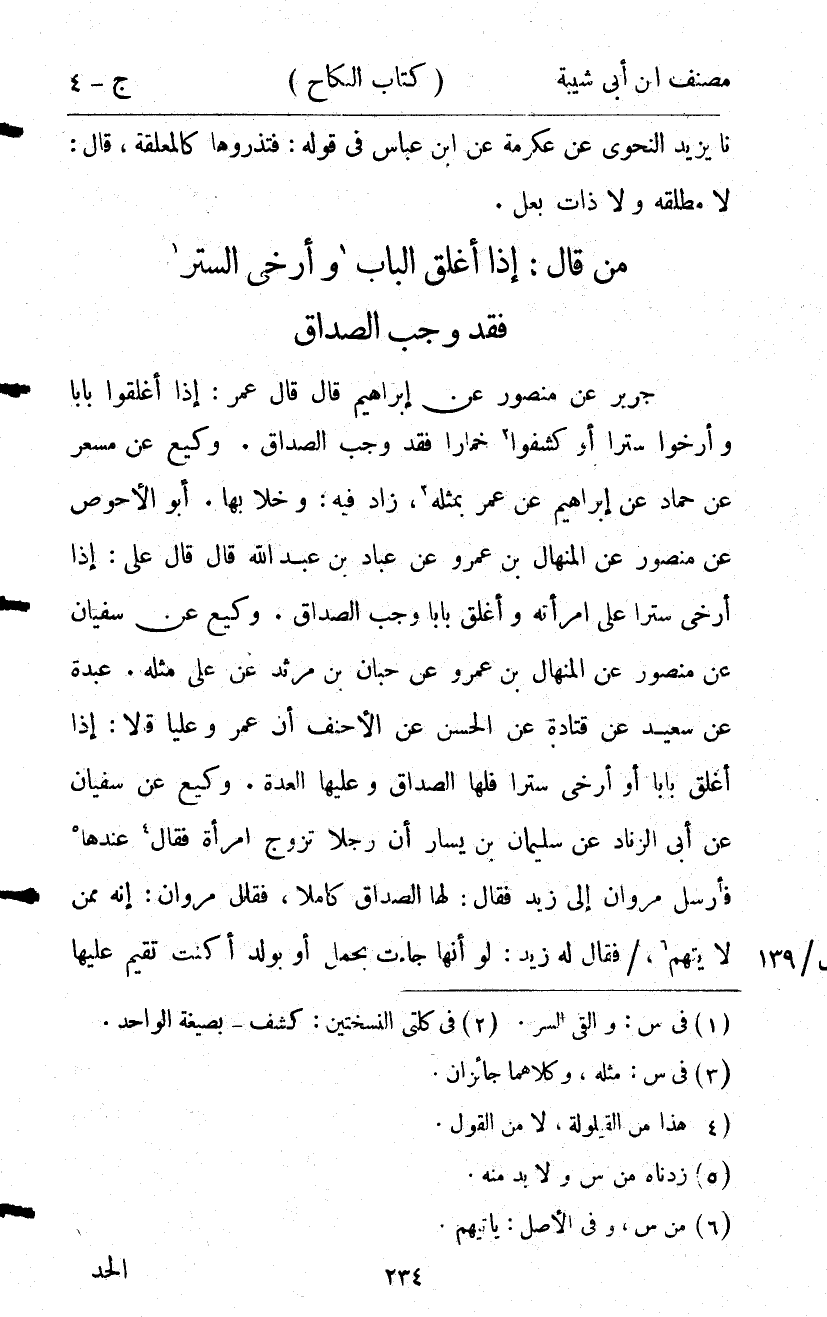 مصنف ابن أبى شيبة ( كتاب النكاح ) ج - ٤
نا يزيد النحوى عن عكرمة عن ابن عباس فى قوله : فتذروها كالمعلقة ، قال :
لا مطلقه و لا ذات بعل .
من قال : إذا أغلق الباب ١و أرخى الستر١
فقد وجب الصداق
جرير عن منصور عن إبراهيم قال قال عمر : إذا أغلقوا بابا
و أرخوا سترا أو كشفوا٢ خمارا فقد وجب الصداق . وكيع عن مسعر
عن حماد عن إبراهيم عن عمر بمثله٣ ، زاد فيه : و خلا بها . أبو الأحوص
عن منصور عن المنهال بن عمرو عن عباد بن عبد الله قال قال على : إذا
أرخى سترا على امرأته و أغلق بابا وجب الصداق . وكيع عن سفيان
عن منصور عن المنهال بن عمرو عن حبان بن مرثد عن على مثله . عبدة
عن سعيد عن قتادة عن الحسن عن الأحنف أن عمر و عليا قالا : إذا
أغلق بابا أو أرخى سترا فلها الصداق و عليها العدة . وكيع عن سفيان
عن أبى الزناد عن سليمان بن يسار أن رجلا تزوج امرأة فقال٤ عندها٥
فأرسل مروان إلى زيد فقال : لها الصداق كاملا ، فقال مروان : إنه ممن
لا يتهم٦ ، / فقال له زيد : لو أنها جاءت بحمل أو بولد أ كنت تقيم عليها
/١٣٩
(١) فى س : و القى السر . (٢) فى كلتى النسختين : كشف - بصيغة الواحد .
(٣) فى س : مثله ، و كلاهما جائزان .
(٤ هذا من القيلولة ، لا من القول .
(٥) زدناه من س و لا بد منه .
(٦) من س ، و فى الأصل : ياتيهم .
٢٣٤ الحد